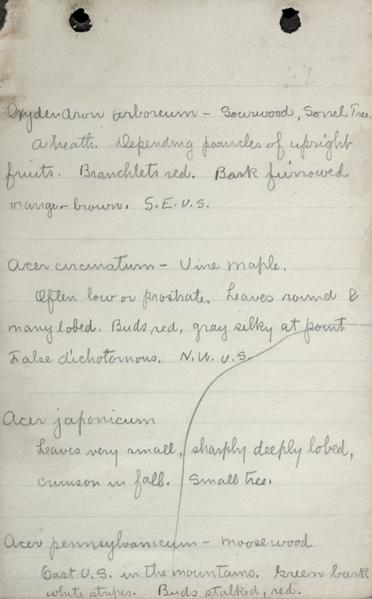 Oxydendron arboreum - Sourwood, Sorrel Tree.
A heath. Depending panicles of upright
fruits. Branchlets red. Bark furrowed
orange-brown. S.E.U.S.
Acer circinatum - Vine Maple.
Often low or prostrate. Leaves round &
many lobed. Buds red, gray silky at point
False dichotomous. N.W. U.S.
Acer japonicum
Leaves very small, sharply deeply lobed,
crimson in fall. Small tree.
Acer pennsylvanicum - moosewood
East U.S. in the mountains. Green bark
white stripes. Buds stalked, red.